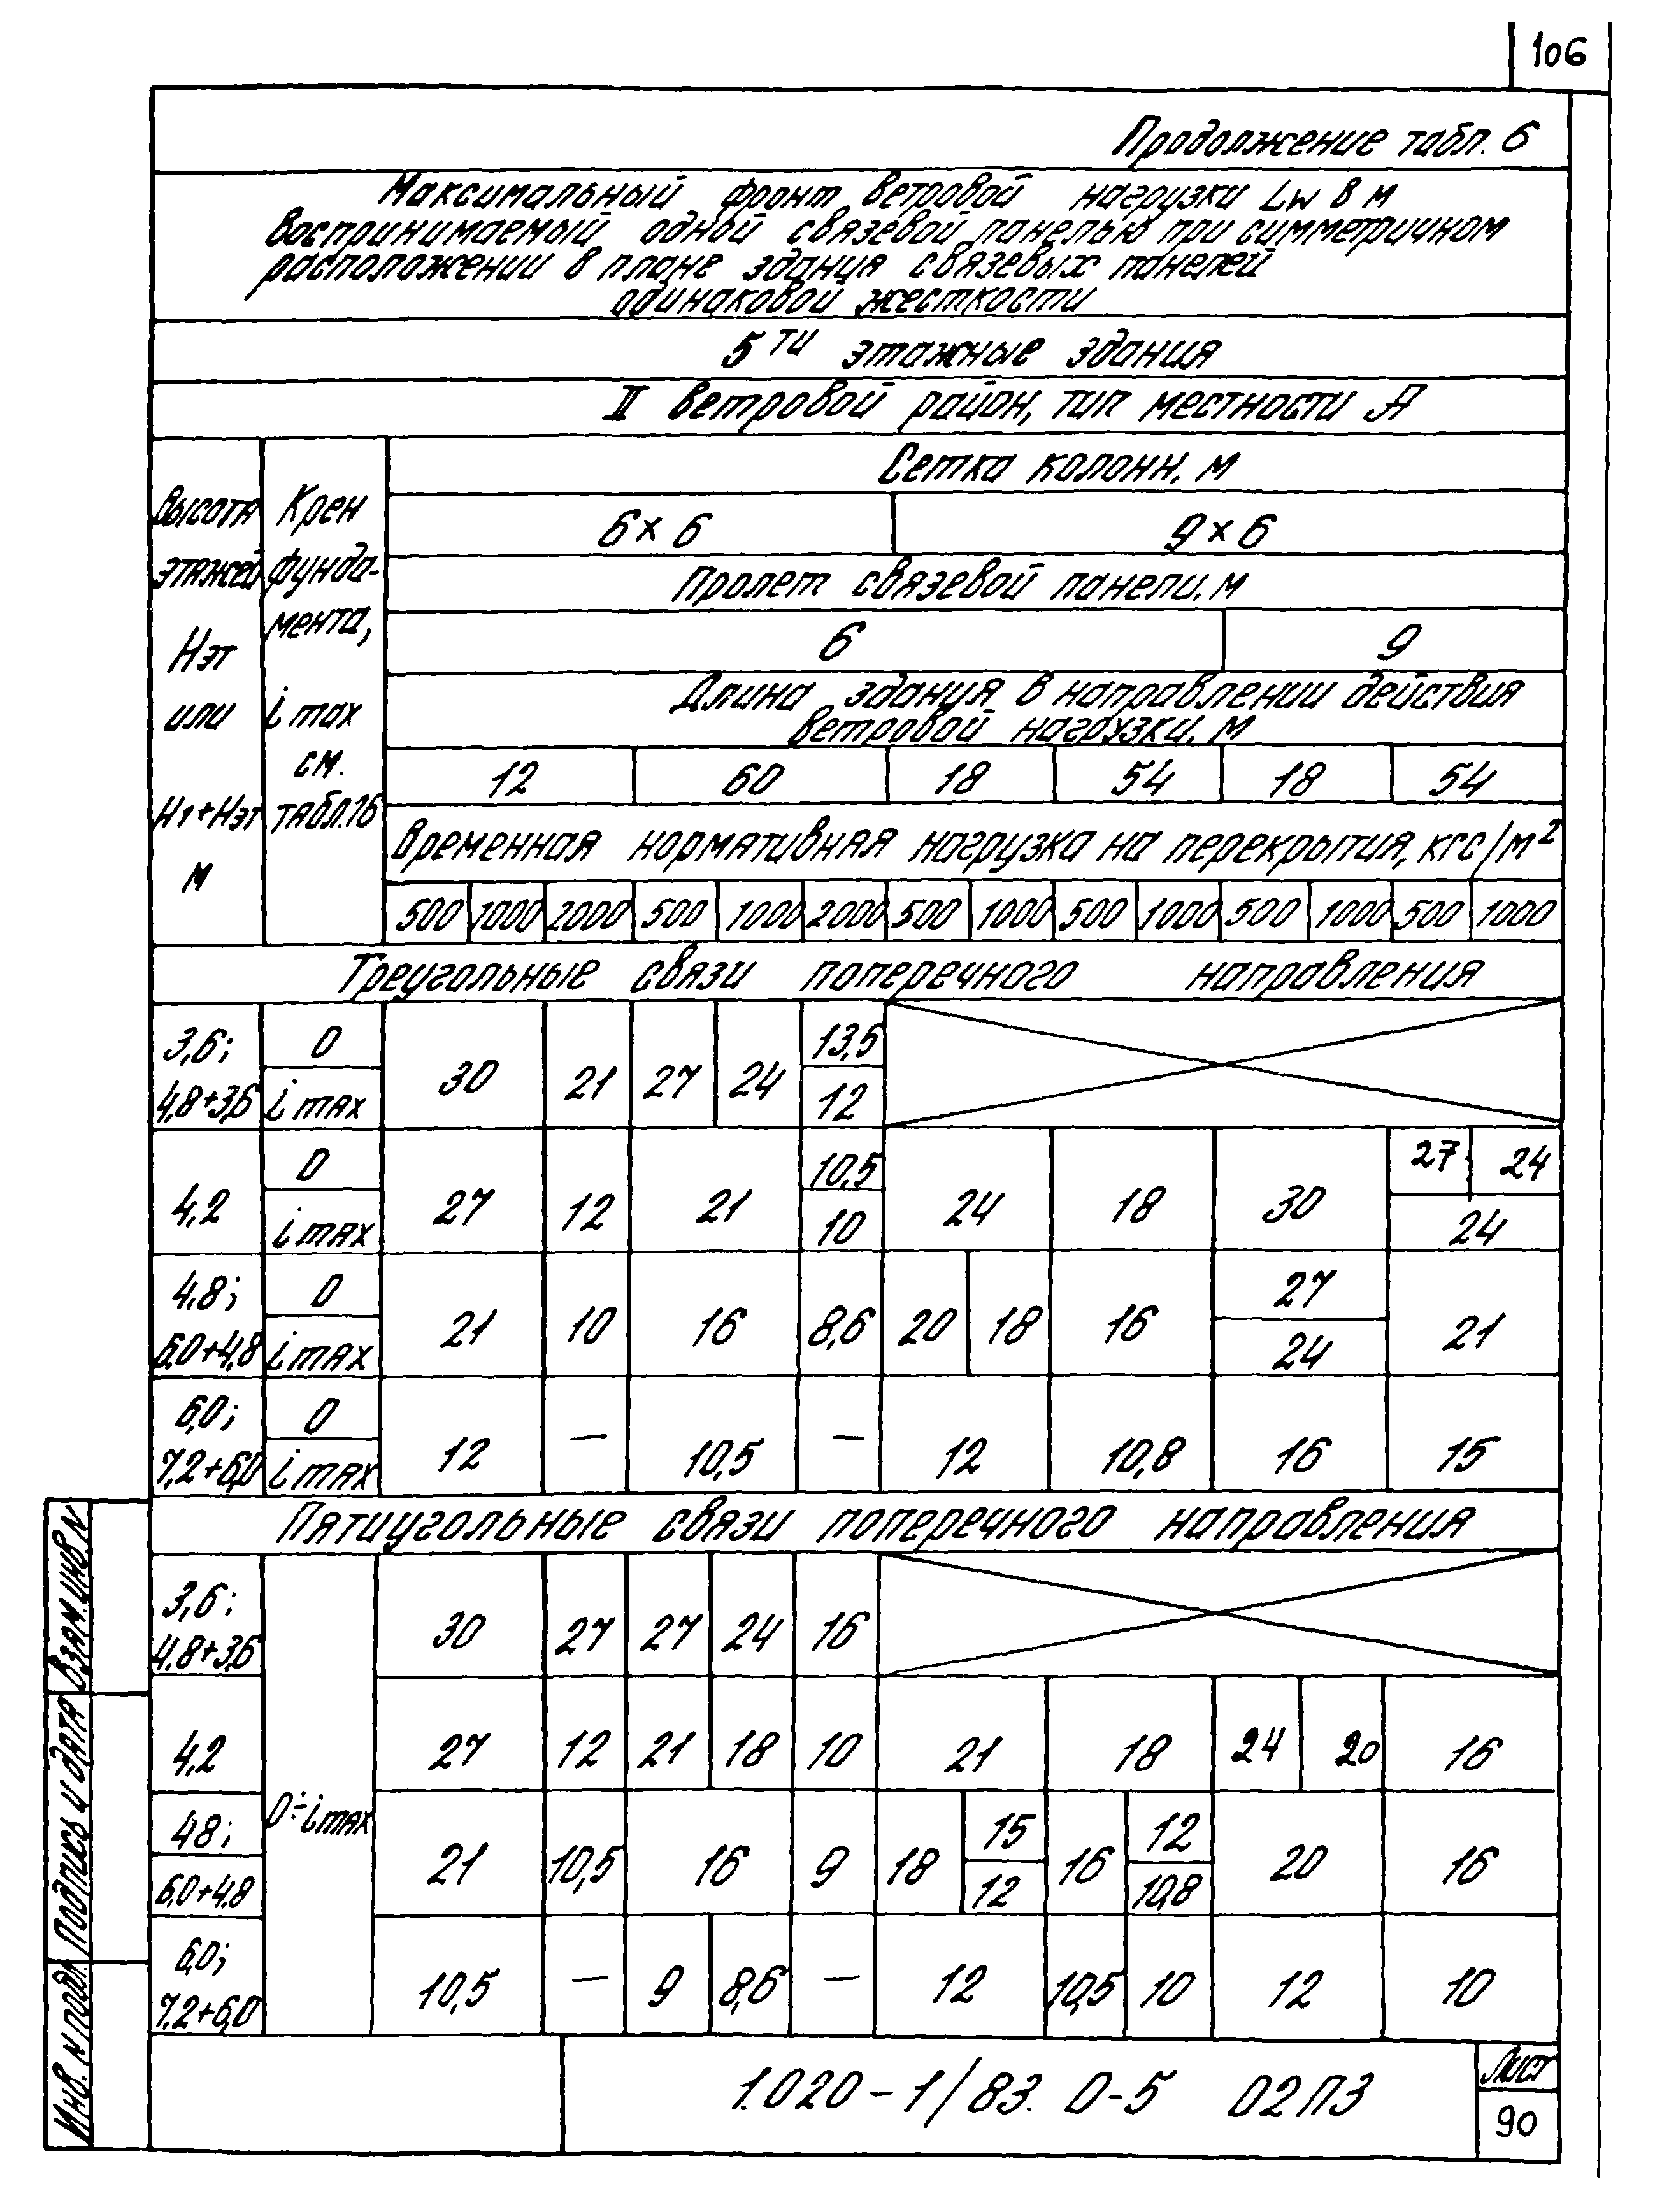 106
Продолжение табл. 6
Максимальный фронт ветровой нагрузки Lw в м
воспринимаемый одной связевой панелью при симметричном
расположении в плане здания связевых панелей
одинаковой жесткости
5ти этажные здания
II ветровой район, тип местности А
Высота этажей Нэт или Н1+Нэт м
Крен фунда-мента, i max см. табл.16
Сетка колонн, м
6×6 9×6
Пролет связевой панели, м
6 9
Длина здания в направлении действия
ветровой нагрузки, м
12 60 18 54 18 54
Временная нормативная нагрузка на перекрытия, кгс/м²
500 1000 2000 500 1000 2000 500 1000 500 1000 500 1000 500 1000
Треугольные связи поперечного направления
3,6; 0 13,5
30 21 27 24
4,8+3,6 i max 12
0 10,5 27 24
4,2 27 12 21 24 18 30
i max 10 24
4,8; 0 27
21 10 16 8,6 20 18 16 21
6,0+4,8 i max 24
6,0; 0
12 — 10,5 — 12 10,8 16 15
7,2+6,0 i max
Пятиугольные связи поперечного направления
3,6;
30 27 27 24 16
4.8+3,6
4,2 27 12 21 18 10 21 18 24 20 16
0÷i max
48; 15 12
21 10,5 16 9 18 16 20 16
6,0+4.8 12 10,8
6,0;
10,5 — 9 8,6 — 12 10,5 10 12 10
7.2+6,0
1.020-1/83. 0-5 02ПЗ
Лист
90
Взам.инв.N
Подпись и дата
Инв. N подл.